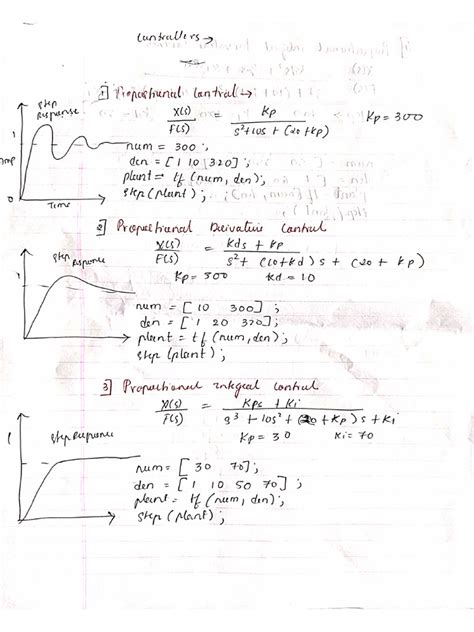 Controllers →
1] Proportional Control →
Step
Response
X(s) / F(s) = Kp / s²+10s + (20+Kp)
Kp = 300
1
num = 300 ;
den = [1 10 320] ;
plant = tf (num, den) ;
step (plant) ;
0
Time
2] Proportional Derivative Control
X(s) / F(s) = Kds + Kp / s² + (10+Kd) s + (20 + Kp)
Step Response
Kp = 300 Kd = 10
1
num = [ 10 300] ;
den = [ 1 20 320] ;
plant = tf (num, den) ;
step (plant) ;
3] Proportional Integral Control
X(s) / F(s) = Kps + Ki / s³ + 10s² + (20 + Kp) s + Ki
Kp = 30 Ki = 70
1
Step Response
num = [ 30 70] ;
den = [ 1 10 50 70] ;
plant = tf (num, den) ;
step (plant) ;